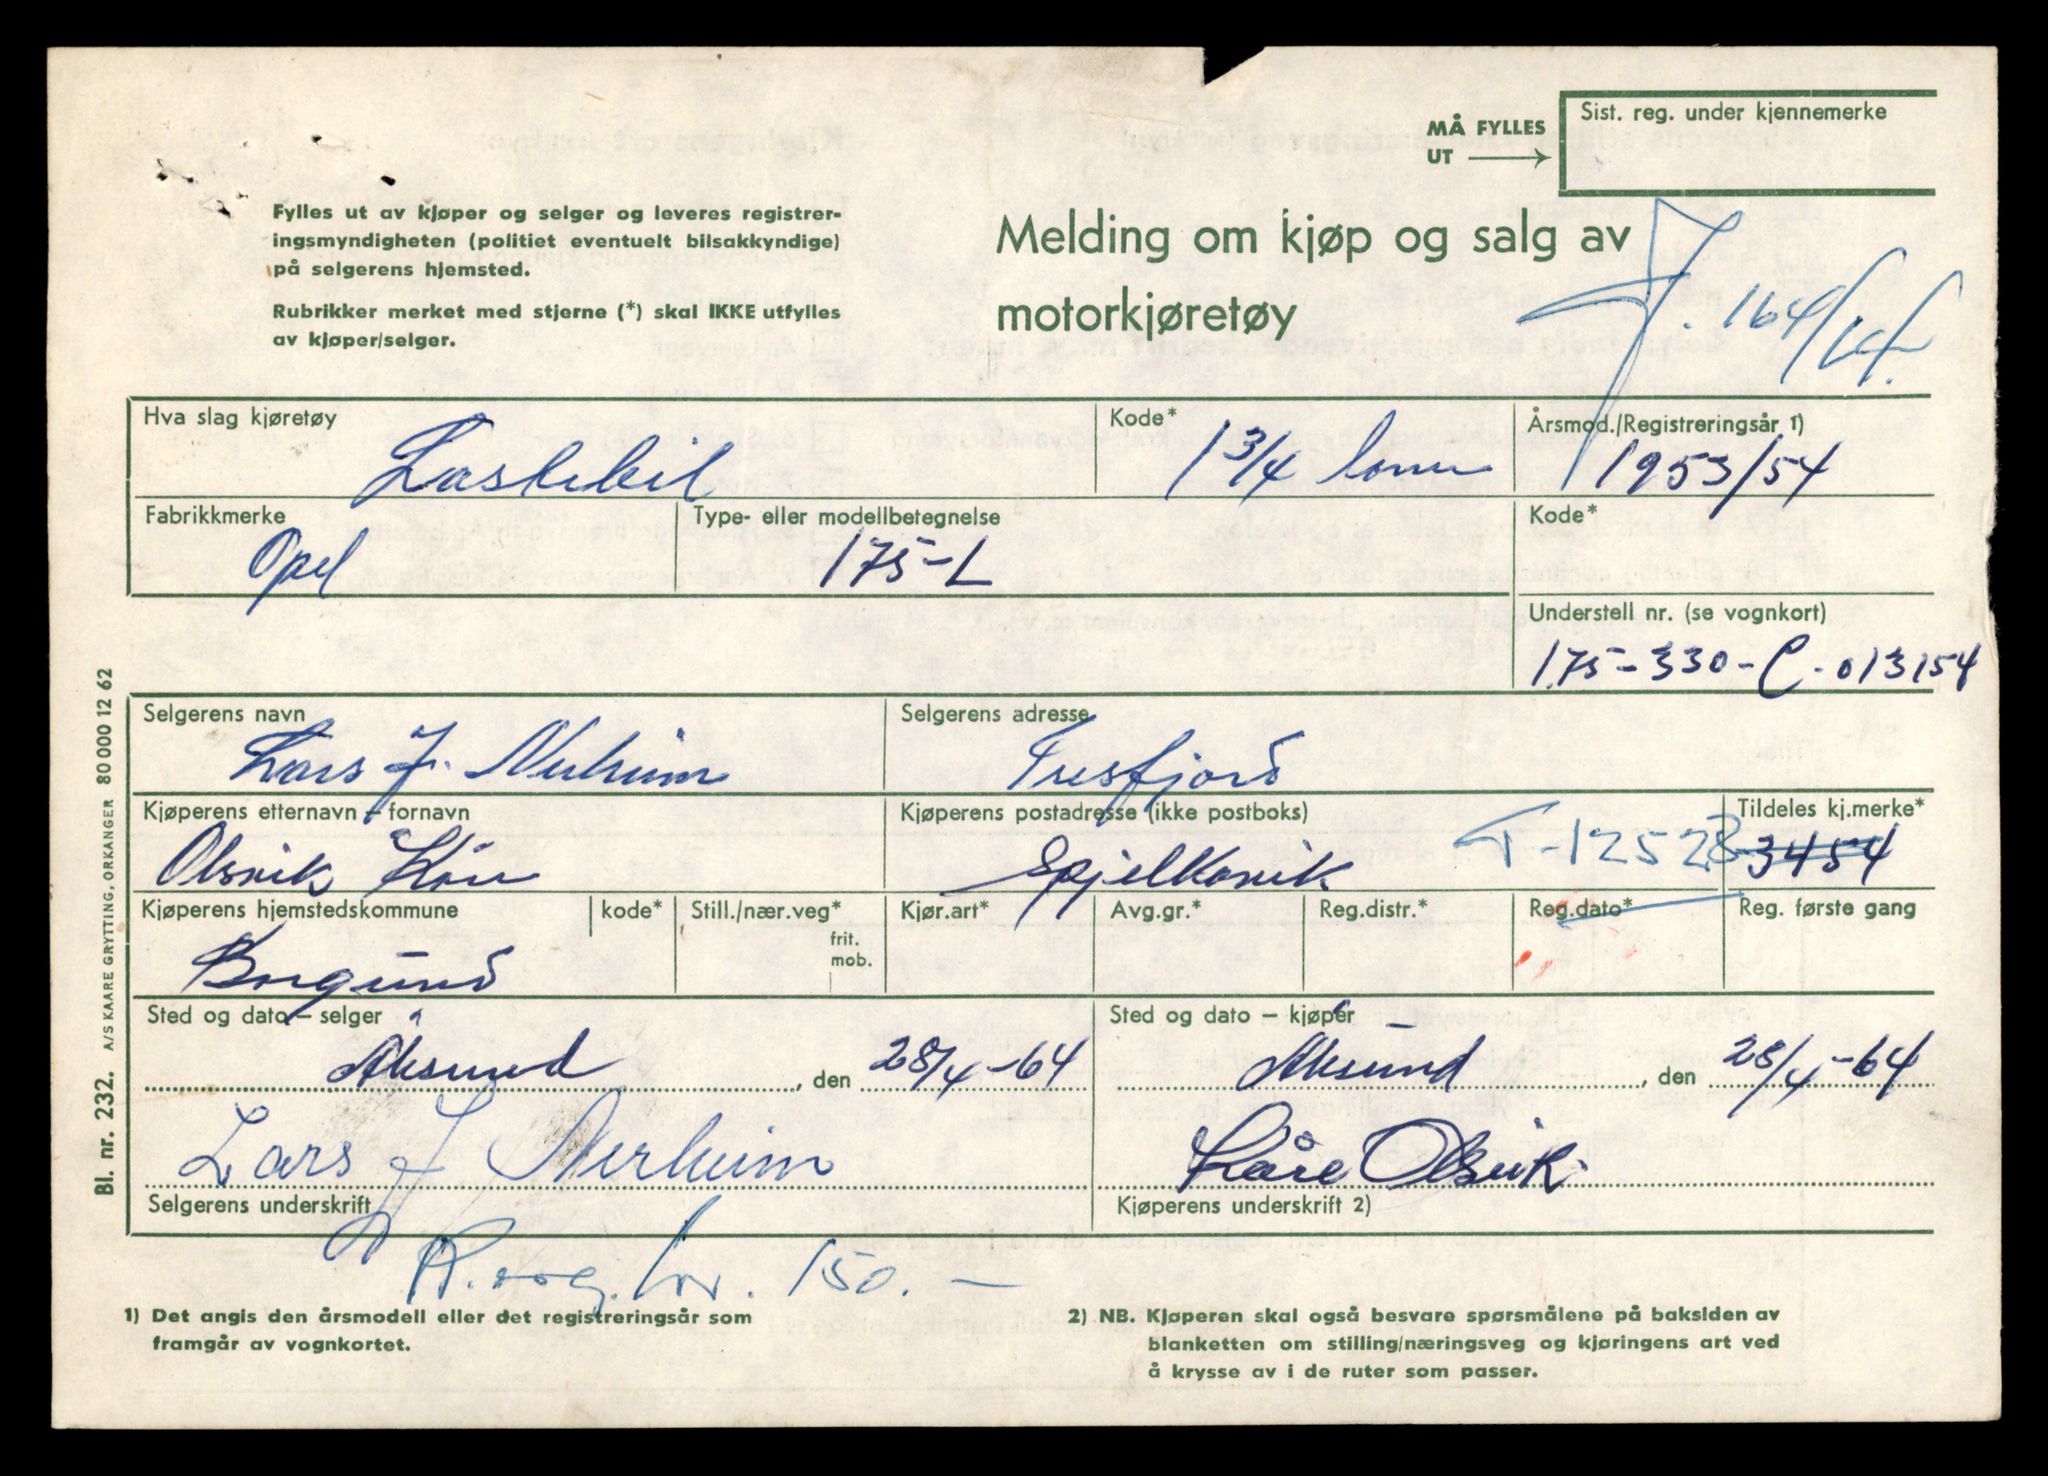 MÅ FYLLES
UT
Sist. reg. under kjennemerke
Fylles ut av kjøper og selger og leveres registrer-
ingsmyndigheten (politiet eventuelt bilsakkyndige)
på selgerens hjemsted.
Rubrikker merket med stjerne (*) skal IKKE utfylles
av kjøper/selger.
Melding om kjøp og salg av
motorkjøretøy
J. 164/64.
Hva slag kjøretøy
Kode*
Årsmod./Registreringsår 1)
Lastebil
1 3/4 tonn
1953/54
Fabrikkmerke
Type- eller modellbetegnelse
Kode*
Opel
175-L
Understell nr. (se vognkort)
175-330-C-013154
Selgerens navn
Selgerens adresse
Lars J. Nerheim
Tresfjord
Kjøperens etternavn – fornavn
Kjøperens postadresse (ikke postboks)
Tildeles kj.merke*
Olsvik Kåre
Spjelkavik
T-12528
3454
Kjøperens hjemstedskommune
kode*
Still./nær.veg*
frit.
mob.
Kjør.art*
Avg.gr.*
Reg.distr.*
Reg.dato*
Reg. første gang
Borgund
Sted og dato – selger
Sted og dato – kjøper
Ålesund, den 28/4-64
Ålesund, den 28/4-64
Lars J Nerheim
Kåre Olsvik
Selgerens underskrift
Kjøperens underskrift 2)
150.-
1) Det angis den årsmodell eller det registreringsår som
framgår av vognkortet.
2) NB. Kjøperen skal også besvare spørsmålene på baksiden av
blanketten om stilling/næringsveg og kjøringens art ved
å krysse av i de ruter som passer.
Bl. nr. 232. A/S KAARE GRYTTING, ORKANGER 80 000 12 62